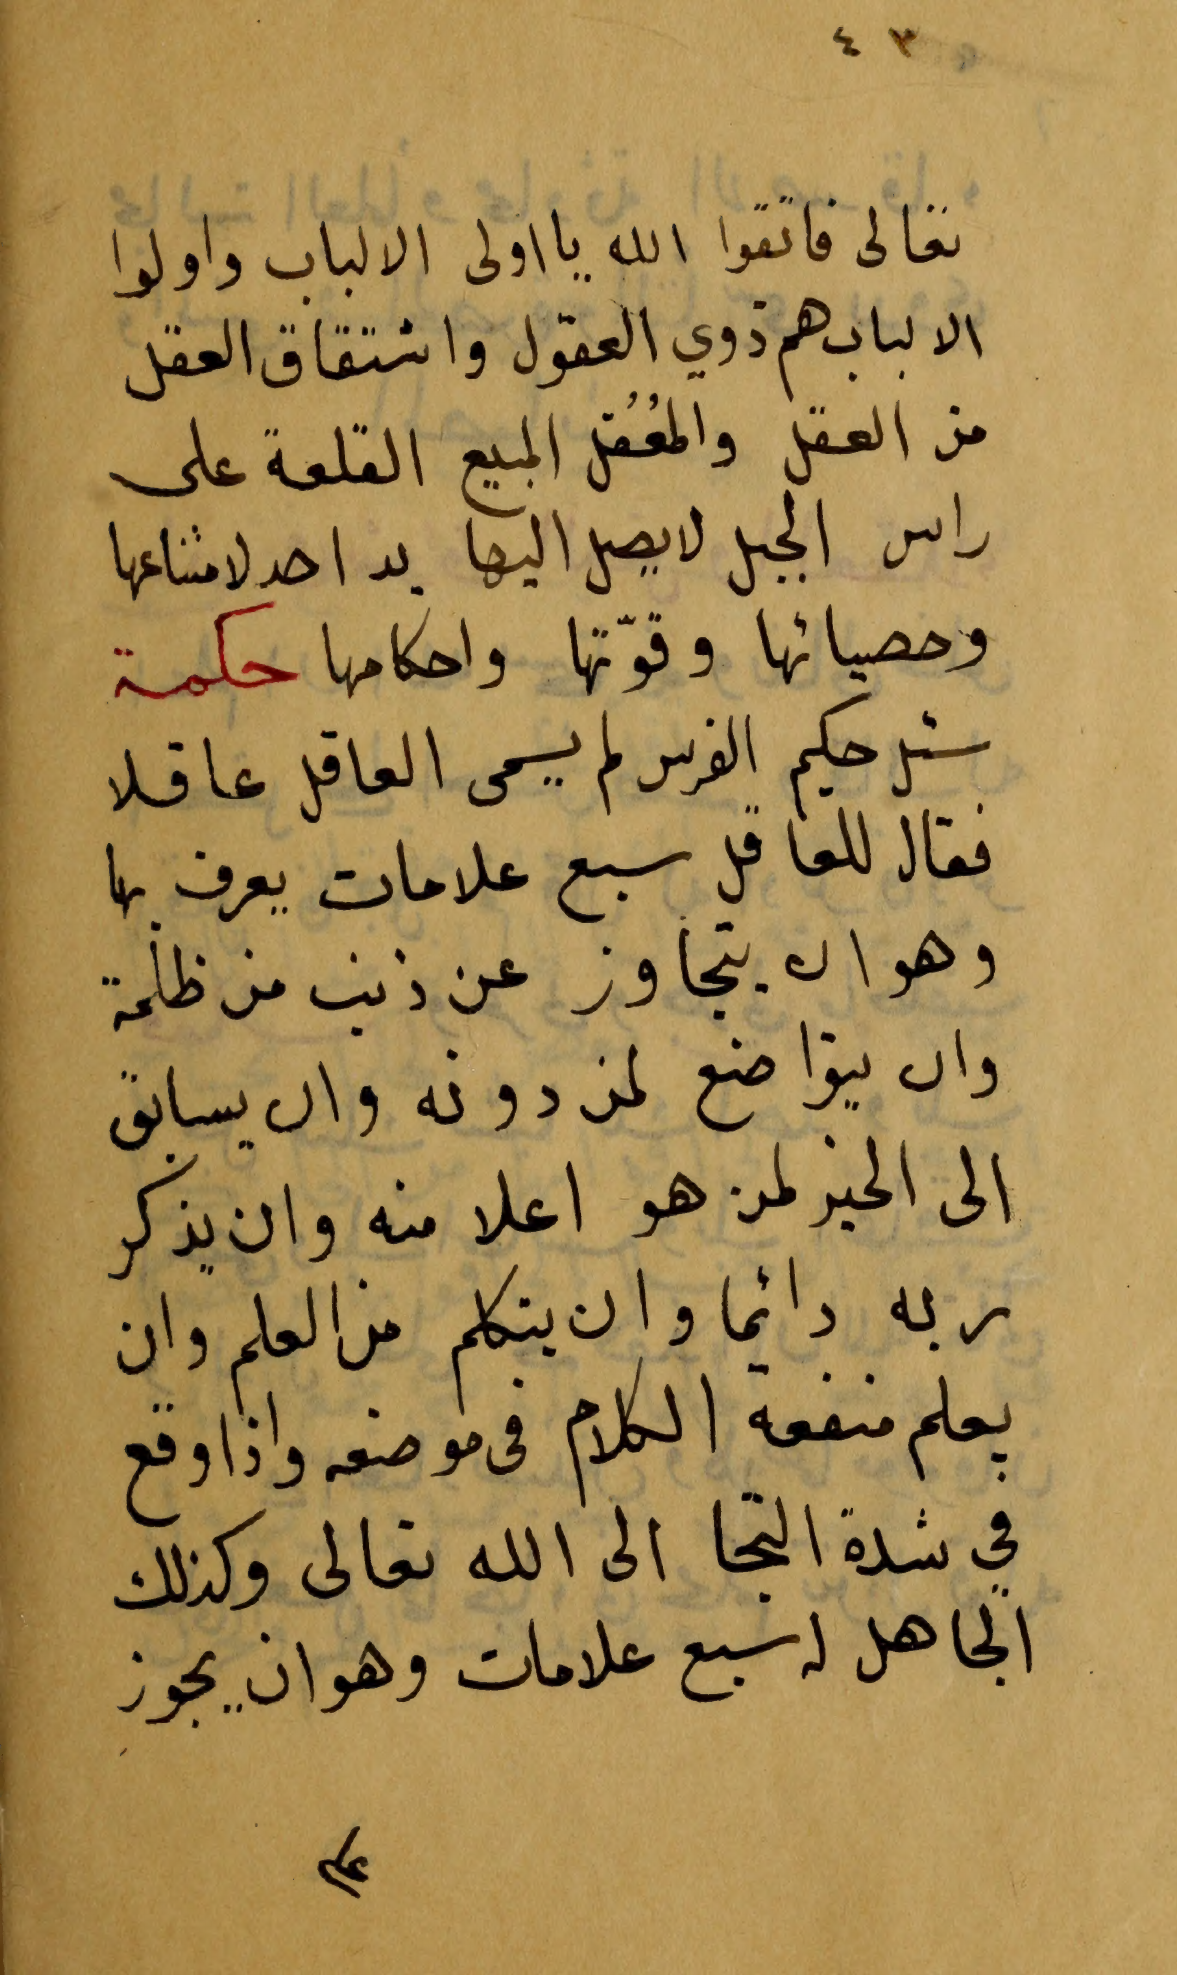 ٤٣
تعالى فاتقوا الله يا اولى الالباب واولوا
الالباب هم ذوي العقول واشتقاق العقل
من العقل والمُعُقل المبيع القلعة على
راس الجبل لا يصل اليها يد احد لامتناعها
وحصيانها وقوّتها واحكامها حكمة
سئل حكيم الفرس لم يسمى العاقل عاقلا
فقال للعاقل سبع علامات يعرف بها
وهو ان يتجاوز عن ذنب من ظلمة
وان يتواضع لمن دونه وان يسابق
الى الخير لمن هو اعلا منه وان يذكر
ربه دائما وان يتكلم من العلم وان
يعلم منفعة الكلام في موضعه واذا وقع
في شدة التجا الى الله تعالى وكذلك
الجاهل له سبع علامات وهو ان يجوز